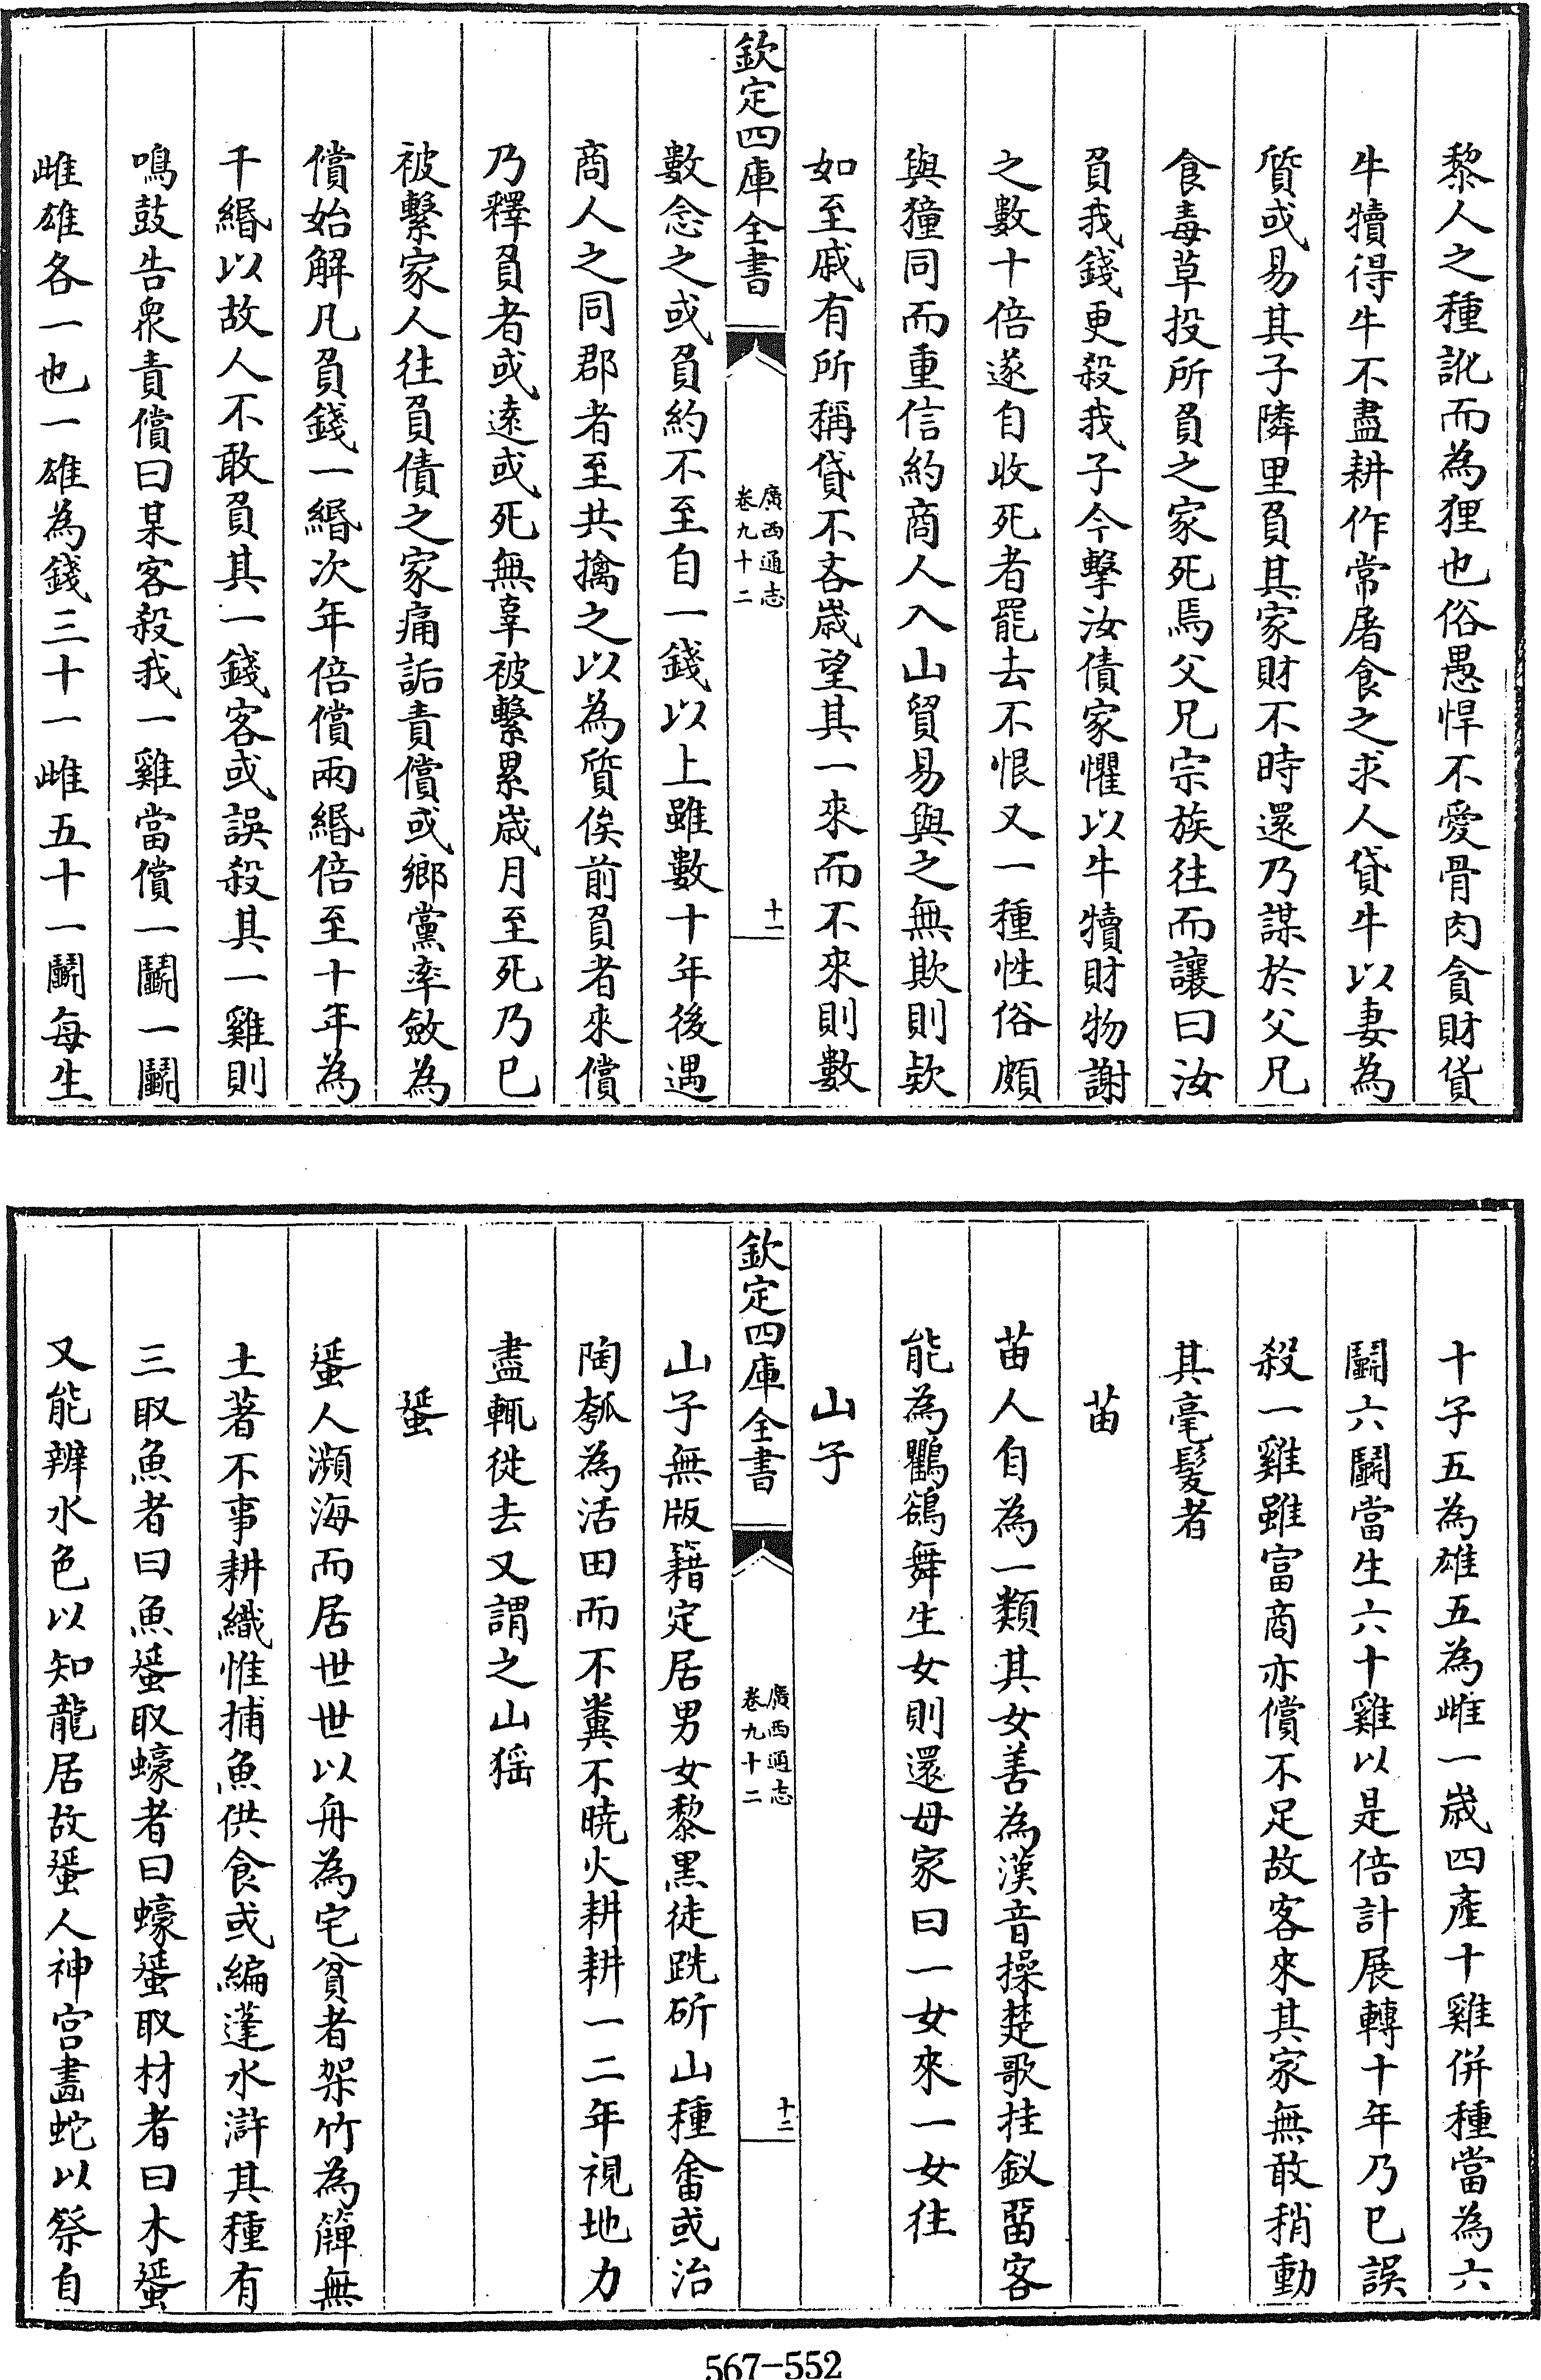 黎人之種訛而為狸也俗愚悍不愛骨肉貪財貨
牛犢得牛不盡耕作常屠食之求人貸牛以妻為
質或易其子隣里負其家財不時還乃謀於父兄
食毒草投所負之家死焉父兄宗族往而讓曰汝
負我錢更殺我子今擊汝債家懼以牛犢財物謝
之數十倍遂自收死者罷去不恨又一種性俗頗
與獞同而重信約商人入山貿易與之無欺則欵
如至戚有所稱貸不吝歳望其一來而不來則數
欽定四庫全書
廣西通志
卷九十二
十一
數念之或負約不至自一錢以上雖數十年後遇
商人之同郡者至共擒之以為質俟前負者來償
乃釋負者或逺或死無辜被繫累歳月至死乃已
被繫家人往負債之家痛詬責償或鄉黨率斂為
償始解凡負錢一緡次年倍償兩緡倍至十年為
千緡以故人不敢負其一錢客或誤殺其一雞則
鳴鼓告衆責償曰某客殺我一雞當償一鬬一鬬
雌雄各一也一雄為錢三十一雌五十一鬬每生
十子五為雄五為雌一歳四產十雞併種當為六
鬬六鬬當生六十雞以是倍計展轉十年乃已誤
殺一雞雖富商亦償不足故客來其家無敢稍動
其毫髮者
苗
苗人自為一類其女善為漢音操楚歌挂釵留客
能為鸜鵒舞生女則還母家曰一女來一女往
山子
欽定四庫全書
廣西通志
卷九十二
十二
山子無版籍定居男女黎黑徒跣斫山種畬或治
陶瓠為活田而不糞不曉火耕耕一二年視地力
盡輒徙去又謂之山猺
蜑
蜑人瀕海而居世世以舟為宅貧者架竹為簰無
土著不事耕織惟捕魚供食或編蓬水滸其種有
三取魚者曰魚蜑取蠔者曰蠔蜑取材者曰木蜑
又能辨水色以知龍居故蜑人神宮畫蛇以祭自
567-552